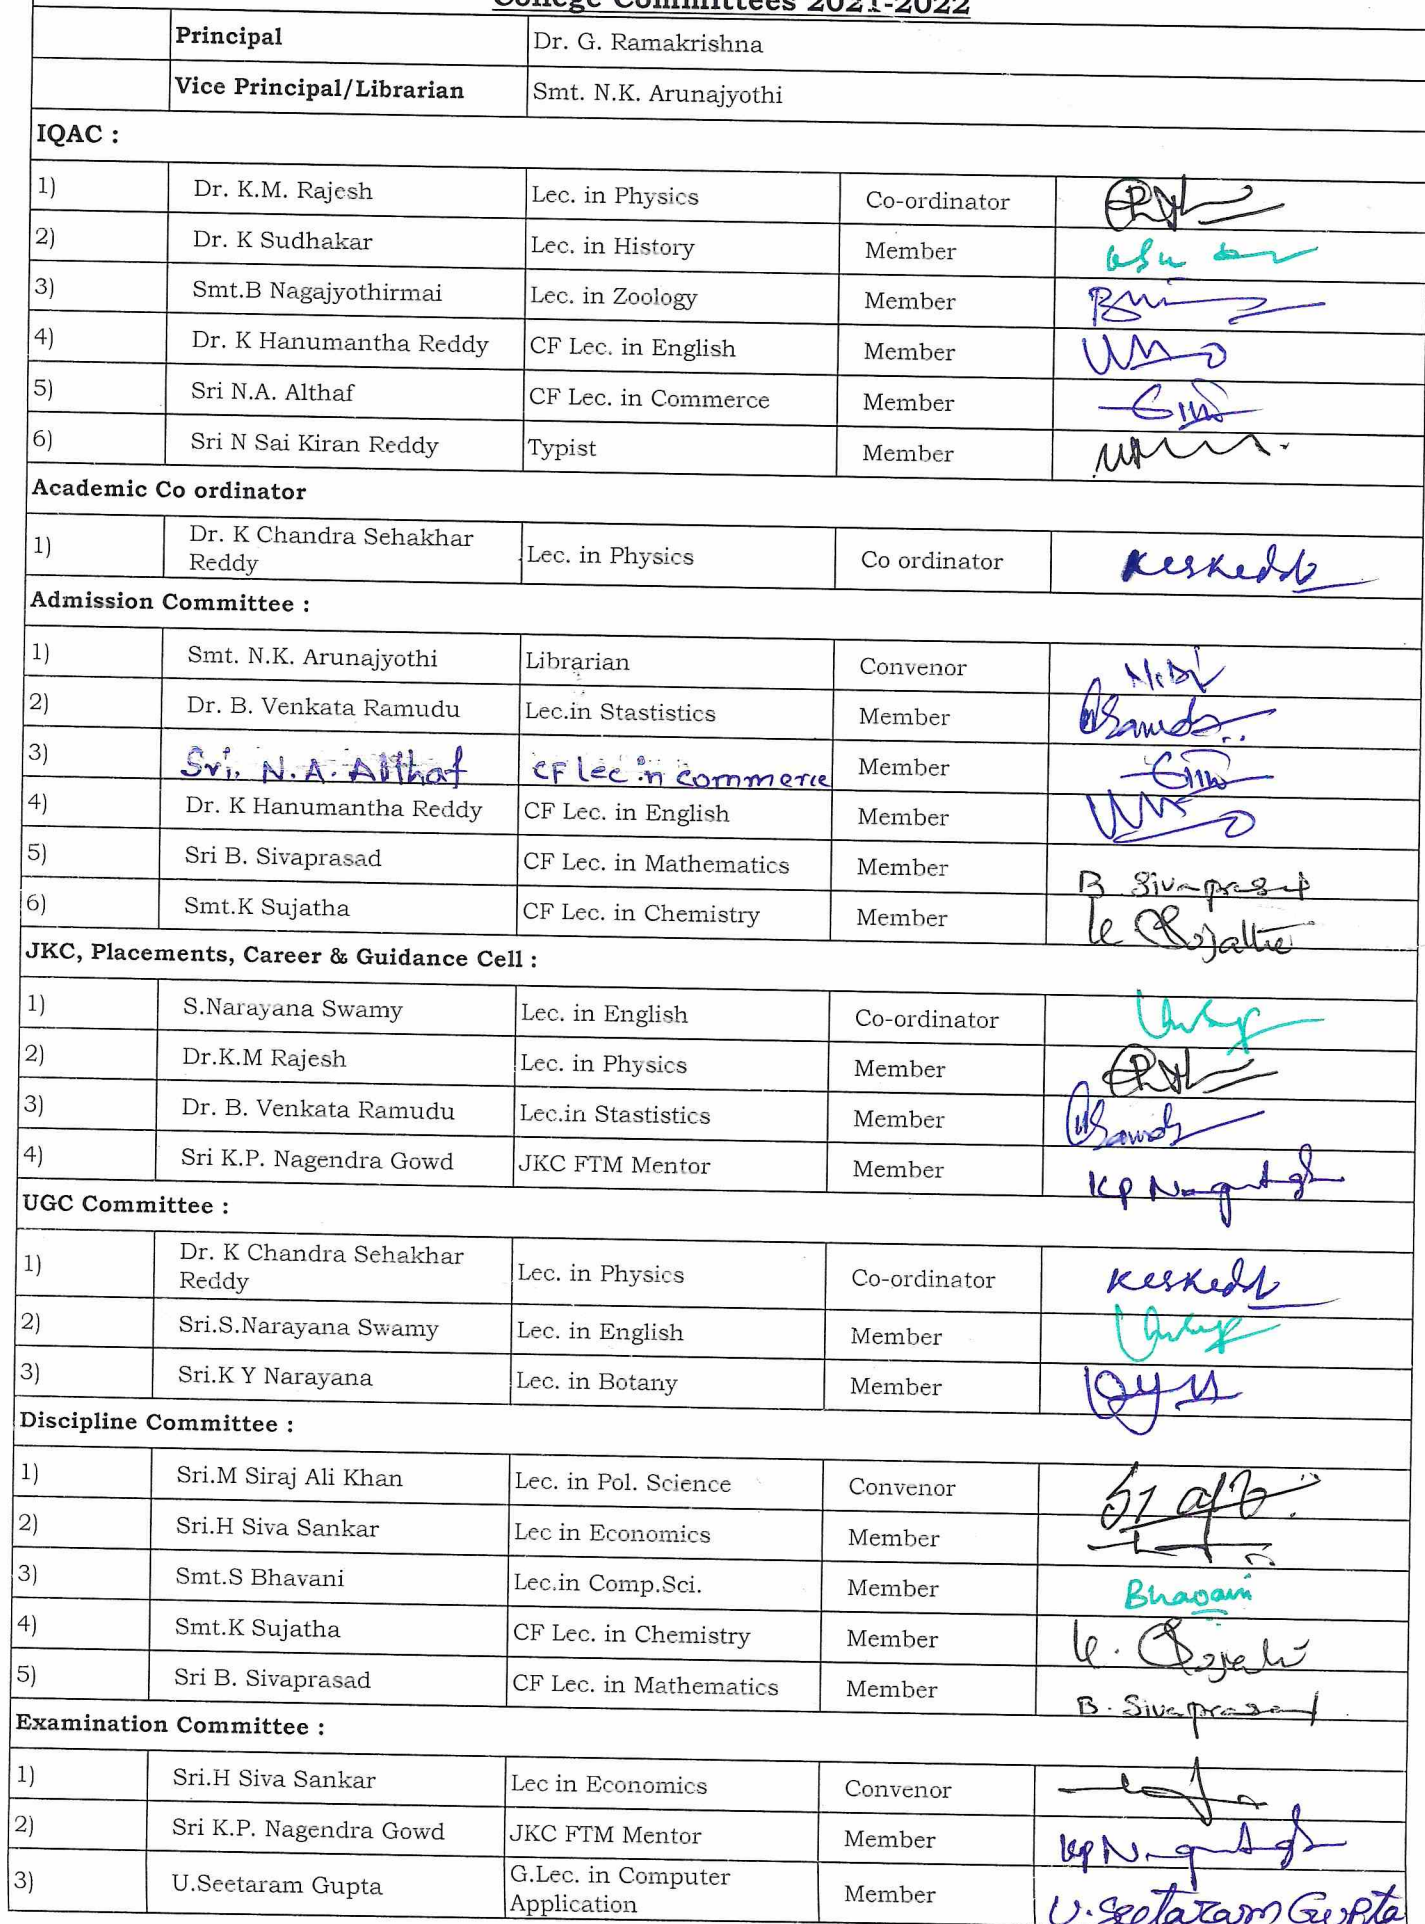 College Committees 2021-2022
Principal Dr. G. Ramakrishna
Vice Principal/Librarian Smt. N.K. Arunajyothi
IQAC :
1) Dr. K.M. Rajesh Lec. in Physics Co-ordinator
2) Dr. K Sudhakar Lec. in History Member
3) Smt.B Nagajyothirmai Lec. in Zoology Member
4) Dr. K Hanumantha Reddy CF Lec. in English Member
5) Sri N.A. Althaf CF Lec. in Commerce Member
6) Sri N Sai Kiran Reddy Typist Member
Academic Co ordinator
1) Dr. K Chandra Sehakhar Reddy Lec. in Physics Co ordinator
Admission Committee :
1) Smt. N.K. Arunajyothi Librarian Convenor
2) Dr. B. Venkata Ramudu Lec.in Stastistics Member
3) Sri. N.A. Althaf CF lec in commerce Member
4) Dr. K Hanumantha Reddy CF Lec. in English Member
5) Sri B. Sivaprasad CF Lec. in Mathematics Member B Sivaprasad
6) Smt.K Sujatha CF Lec. in Chemistry Member
JKC, Placements, Career & Guidance Cell :
1) S.Narayana Swamy Lec. in English Co-ordinator
2) Dr.K.M Rajesh Lec. in Physics Member
3) Dr. B. Venkata Ramudu Lec.in Stastistics Member
4) Sri K.P. Nagendra Gowd JKC FTM Mentor Member
UGC Committee :
1) Dr. K Chandra Sehakhar Reddy Lec. in Physics Co-ordinator
2) Sri.S.Narayana Swamy Lec. in English Member
3) Sri.K Y Narayana Lec. in Botany Member
Discipline Committee :
1) Sri.M Siraj Ali Khan Lec. in Pol. Science Convenor
2) Sri.H Siva Sankar Lec in Economics Member
3) Smt.S Bhavani Lec.in Comp.Sci. Member Bhavani
4) Smt.K Sujatha CF Lec. in Chemistry Member
5) Sri B. Sivaprasad CF Lec. in Mathematics Member B. Sivaprasad
Examination Committee :
1) Sri.H Siva Sankar Lec in Economics Convenor
2) Sri K.P. Nagendra Gowd JKC FTM Mentor Member
3) U.Seetaram Gupta G.Lec. in Computer Application Member U. Seetaram Gupta